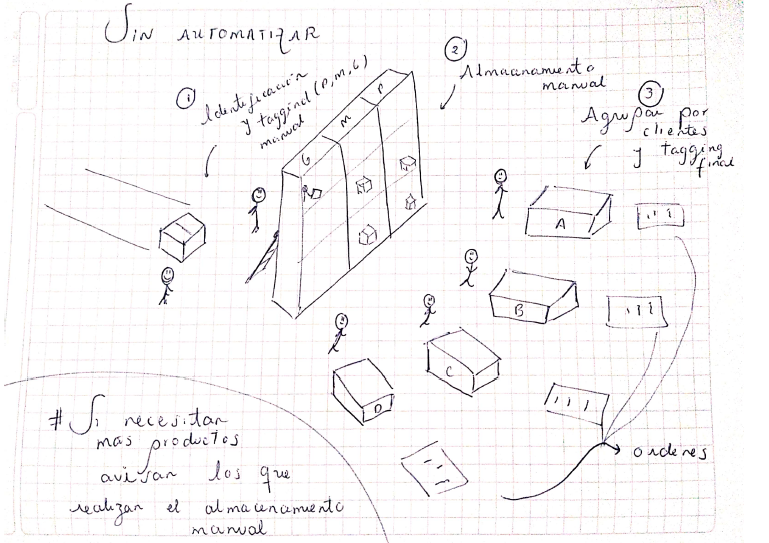 Sin AUTOMATIZAR
①
Identificación
y tagging (P, M, G)
manual
②
Almacenamiento
manual
③
Agrupar por
clientes
y tagging
final
G M P
A
B
C
D
ordenes
# Si necesitan
mas productos
avisan los que
realizan el almacenamiento
manual